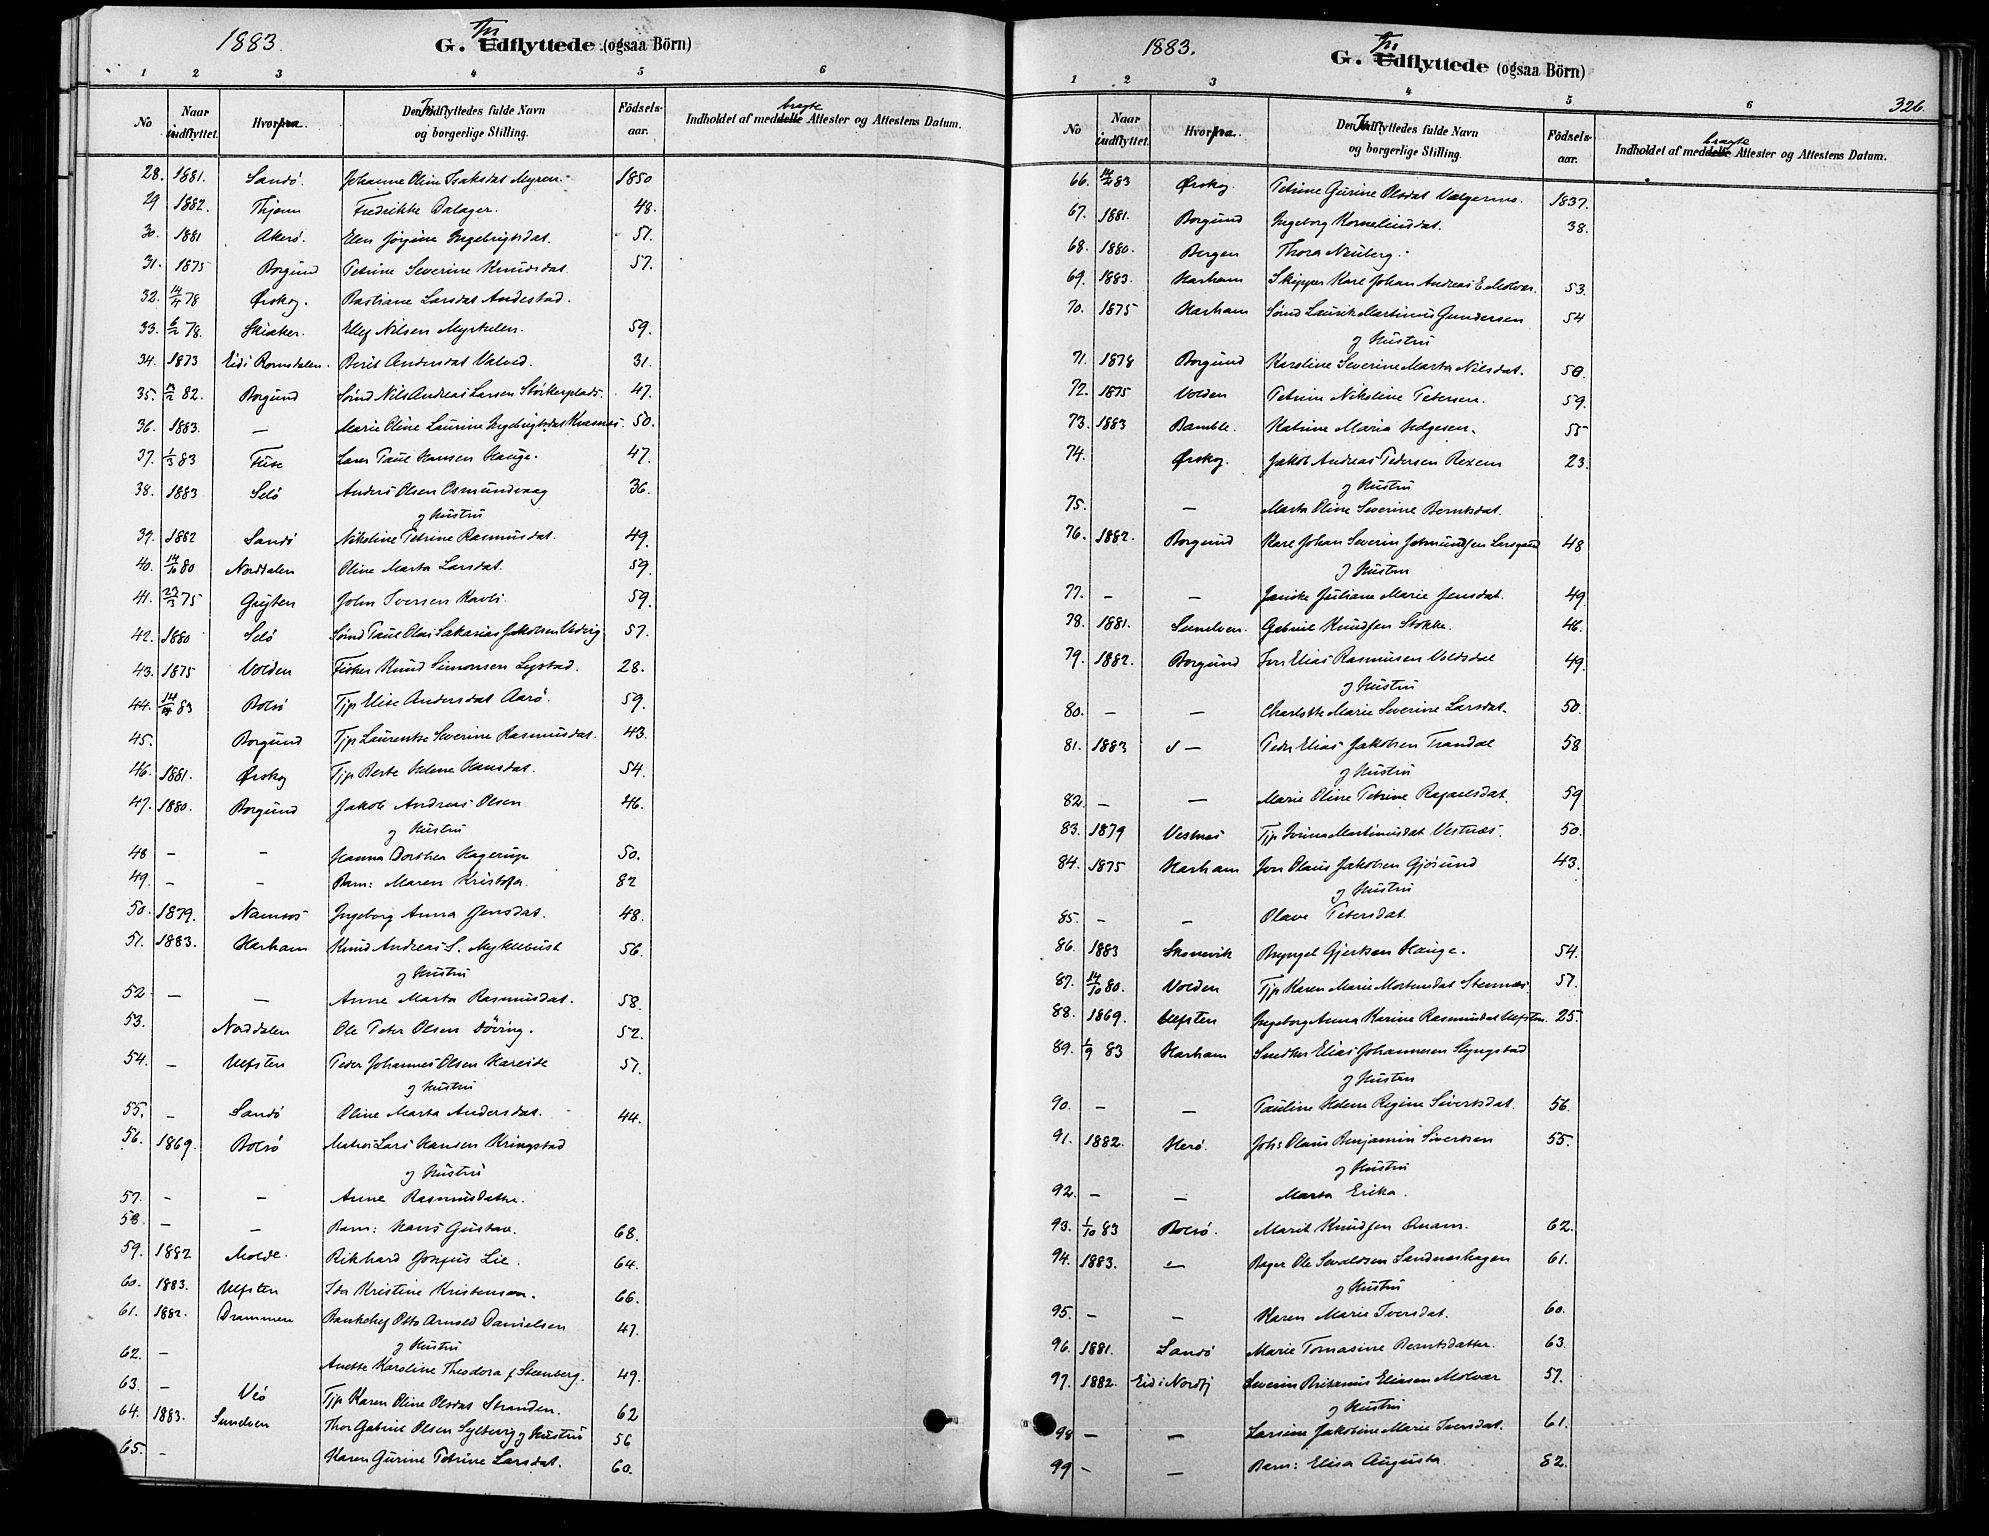 1883.
G. Indflyttede (ogsaa Börn)
1 2 3 4 5 6
No
Naar indflyttet.
Hvorfra.
Den Indflyttedes fulde Navn og borgerlige Stilling.
Födsels-aar.
Indholdet af medbragte Attester og Attestens Datum.
28. 1881. Sandö. Johanne Oline Isaksdat Myren. 1850
29 1882. Thjøm Fredrikke Dalager. 48.
30. 1881 Akerö. Elen Jörgine Ingebrigtsdat. 51.
31. 1875 Borgund Petrine Severine Knudsdat. 57.
32. 14/4 78 Ørskog. Bastiane Larsdat Andestad.
33. 6/2 78. Skiaker. Ellef Nilsen Myrhelen. 59.
34. 1873 Eid i Romsdalen. Berit Andersdat Valved. 31.
35. /2 82. Borgund Smd Nils Andreas Larsen Störkersplads. 47.
36. 1883. — Marie Oline Laurine Ingebrigtsdat Kvasnes. 50.
37. 1/3 83 Fuse Lars Paul Hansen Hauge. 47.
38. 1883 Selö Anders Olsen Osmundsvaag 36.
og Hustru
39. 1882 Sandö Nikoline Petrine Rasmusdat. 49.
40. 14/10 80 Norddalen Oline Marta Larsdat. 59.
41. 27/3 75 Grytten John Iversen Kavli 59.
42. 1880 Selö Smd Paul Olai Sakarias Jakobsen Vedvig 57.
43. 1875 Volden Fisker Knud Simonsen Lystad. 28.
44. 14/4 83 Bolsö Tjp Elise Andersdat Aarö. 59.
45. Borgund Tjp Laurentse Severine Rasmusdat. 43.
46. 1881. Ørskog Tjp Berte Helene Hansdat. 54.
47. 1880. Borgund Jakob Andreas Olsen 46.
og Hustru
48 — — Hanna Dorthea Hagerup 50.
49. — — Barn: Maren Kristofa. 82
50. 1879. Namsos Ingeborg Anna Jensdat. 48.
51. 1883. Harham Knud Andreas S. Myklebust 56.
og Hustru
52 — — Anne Marta Rasmusdat. 58.
53. Norddalen Ole Peter Olsen Döving. 52.
54. — Ulfsten Peder Johannes Olsen Hareide 51.
og Hustru
55. — Sandö Oline Marta Andersdat. 44.
56. 1869. Bolsö Matros Lars Hansen Kringstad
og Hustru
57. — — Anne Rasmusdatter.
58. — — Barn: Hans Gustav. 68.
59. 1882 Molde. Rikhard Josefus Lie. 64.
60. 1883. Ulfsten Ida Kristine Kristensen. 66.
61. 1882. Drammen Bankchef Otto Arnold Danielsen 47.
og Hustru
62. — Anette Karoline Theodora f. Steenberg. 49.
63. — Veö Tjp Karen Oline Olsdat Stranden. 62
64. 1883. Sunelven Thor Gabriel Olsen Sylteviig og Hustru 56
65. — Karen Gurine Petrine Larsdat. 60.
1883.
G. Indflyttede (ogsaa Börn)
326.
1 2 3 4 5 6
No
Naar indflyttet.
Hvorfra.
Den Indflyttedes fulde Navn og borgerlige Stilling.
Födsels-aar.
Indholdet af medbragte Attester og Attestens Datum.
66. 14/2 83 Ørskog. Petrine Gurine Olsdat Valgermo. 1837.
67. 1881. Borgund Ingeborg Korneliusdat. 38.
68. 1880. Bergen Thora Neuberg.
69. 1883. Harham Skipper Karl Johan Andreas E. Molvær. 53.
70. 1875 Harham Smd Laurits Martinus Gundersen 54
og Hustru
71. 1878 Borgund Karoline Severine Marta Nilsdat. 50.
72. 1875 Volden Petrine Nikoline Petersen. 59.
73. 1883 Bamble. Katrine Maria Helgesen. 55
74. Ørskog. Jakob Andreas Pedersen Rexem 23.
og Hustru
75. — Marta Oline Severine Berntsdat.
76. 1882. Borgund Karl Johan Severin Jetmundsen Lorgaard 48
og Hustru
77. — — Janike Juliane Marie Jensdat. 49
78. 1881. Sunelven. Gabriel Knudsen Stokke. 46.
79. 1882. Borgund Iver Elias Rasmusen Voldsdal 49.
og Hustru
80. — — Charlotte Marie Severine Larsdat. 50.
81. 1883 — Peder Elias Jakobsen Trandal 58
og Hustru
82. — — Marie Oline Petrine Rafaelsdat. 59
83. 1879 Vestnes Tjp Ivrina Martinusdat Vestnes. 50.
84. 1875 Harham Iver Olaus Jakobsen Gjösund 43.
og Hustru
85. — — Olave Petersdat.
86. 1883 Skonevik Brynjel Gjertsen Hauge. 54.
87. 14/10 80. Volden Tjp Karen Marie Mortensdat Steinnes. 57.
88. 1869. Ulfsten Ingeborg Anna Karine Rasmusdat Ulfsten. 25.
89. 1/9 83 Harham Snedker Elias Johannesen Slyngstad
og Hustru
90. — — Pauline Helene Regine Sivertsdat. 56.
91. 1882. Herö. Johs Olaus Benjamin Sivertsen 55.
og Hustru
92. — — Marta Erika.
93. 1/10 83 Bolsö. Marit Knudsen Aram. 62.
94. 1883. — Bager Ole Sivaldsen Sandneshagen 61.
og Hustru
95. — — Karen Marie Iversdat. 60.
96. 1881. Sandö Marie Tomasine Berntsdatter. 63.
97. 1882. Eid i Nordfj Severin Britanus Eliasen Molvær 57.
og Hustru
98 — — Larsine Jakobine Marie Iversdat. 61.
99 — — Barn: Elisa Augusta 82.